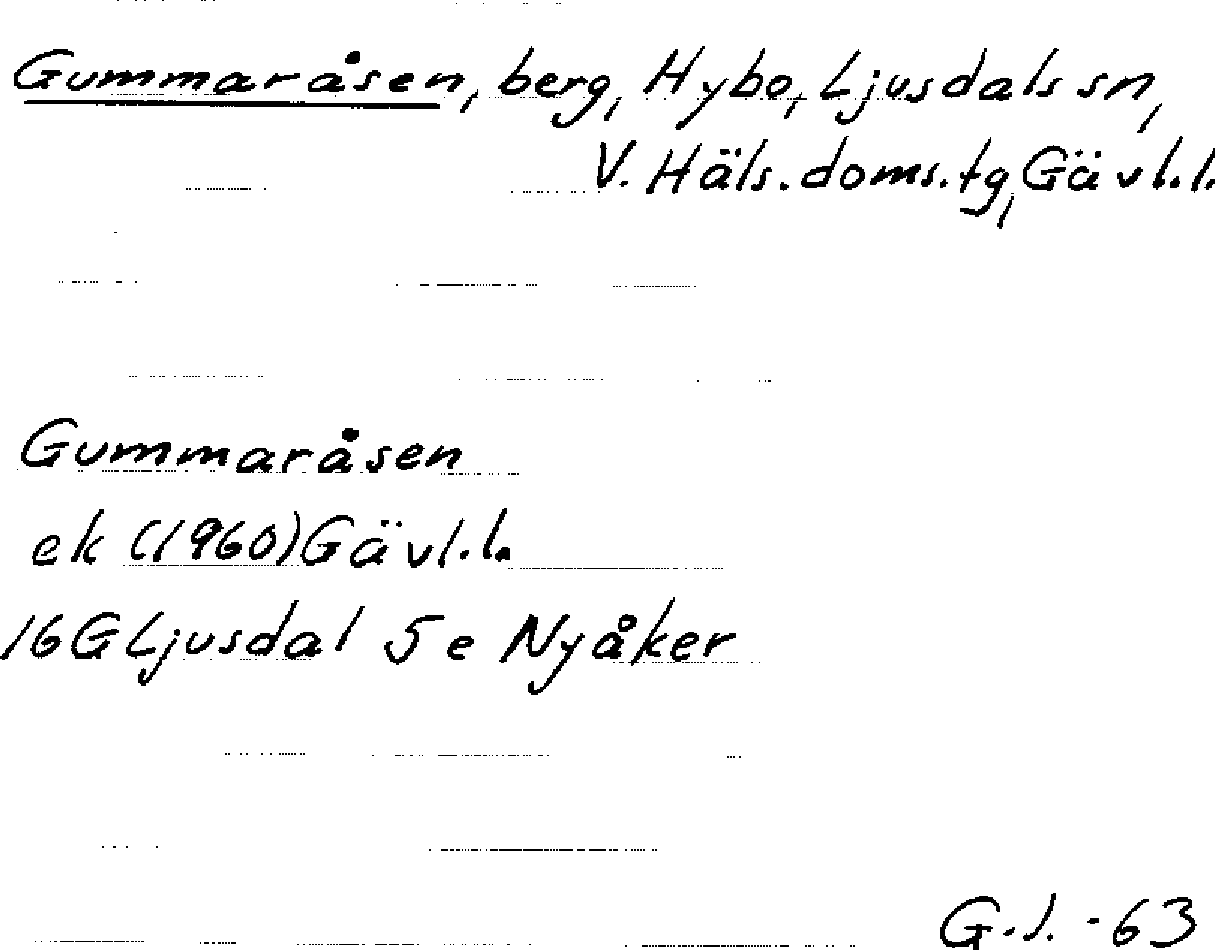 Gummaråsen, berg, Hybo, Ljusdals sn,
V. Häls. doms. tg, Gävl. l.
Gummaråsen
ek (1960) Gävl. l.
16G Ljusdal 5e Nyåker
G.J. -63